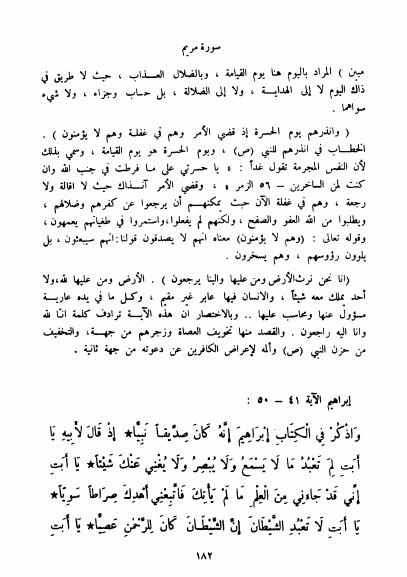 سورة مريم
مبين ) المراد باليوم هنا يوم القيامة ، وبالضلال العـذاب ، حيث لا طريق في
ذاك اليوم لا إلى الهدايـة ، ولا إلى الضلالة ، بل حساب وجزاء ، ولا شيء
سواهما .
( وانذرهم يوم الحسرة إذ قضي الأمر وهم في غفلة وهم لا يؤمنون ) .
الخطـاب في انذرهم للنبي (ص) ، ويوم الحسرة هو يوم القيامة ، وسمي بذلك
لأن النفس المجرمة تقول غداً : « يا حسرتي على مـا فرطت في جنب الله وان
كنت لمن الساخرين – ٥٦ الزمر » ، وقضي الأمر آنـذاك حيث لا اقالة ولا
رجعة ، وهم في غفلة الآن حيث يمكنهـم أن يرجعوا عن كفرهم وضلالهم ،
ويطلبوا من الله العفو والصفح ، ولكنّهم لم يفعلوا،واستمروا في طغيانهم يعمهون،
وقوله تعالى : (وهم لا يؤمنون) معناه انهم لا يصدقون قولنا:انهم سيبعثون، بل
يلوون رؤوسهم ، وهم يسخرون .
(انا نحن نرث الأرض ومن عليها والينا يرجعون ) . الأرض ومن عليها لله،ولا
أحد يملك معه شيئاً ، والانسان فيها عابر غير مقيم ، وكـل ما في يده عاريـة
مسؤول عنها ومحاسب عليها .. وبالاختصار ان هذه الآيـة ترادف كلمة انا لله
وانا اليه راجعون . والقصد منها تخويف العصاة وزجرهم من جهـة، والتخفيف
من حزن النبي (ص) وألمه لإعراض الكافرين عن دعوته من جهة ثانية .
إبراهيم الآية ٤١ – ٥٠ :
وَاذْكُرْ فِي الْكِتَابِ إِبْرَاهِيمَ إِنَّهُ كَانَ صِدِّيقاً نَبِيّاً★ إِذْ قَالَ لِأَبِيهِ يَا
أَبَتِ لِمَ تَعْبُدُ مَا لَا يَسْمَعُ وَلَا يُبْصِرُ وَلَا يُغْنِي عَنْكَ شَيْئاً★ يَا أَبَتِ
إِنِّي قَدْ جَاءَنِي مِنَ الْعِلْمِ مَا لَمْ يَأْتِكَ فَاتَّبِعْنِي أَهْدِكَ صِرَاطاً سَوِيّاً★
يَا أَبَتِ لَا تَعْبُدِ الشَّيْطَانَ إِنَّ الشَّيْطَانَ كَانَ لِلرَّحْمَنِ عَصِيّاً★ يَا أَبَتِ
١٨٢